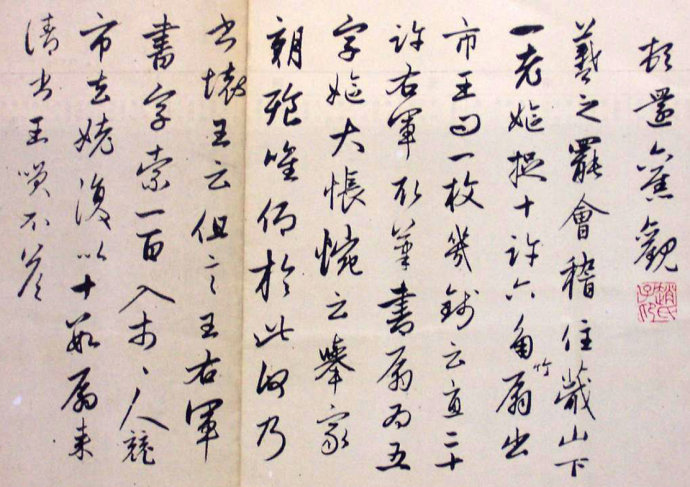 頓還舊觀
趙氏子昂
羲之罷會稽住蕺山下
一老嫗捉十許六角竹扇出
市王問一枚幾錢云直二十
許右軍取筆書扇為五
字嫗大悵惋云舉家
朝飡唯仰於此何乃
書壞王云但言王右軍
書字索一百入市、人競
市去姥復以十數扇来
請書王笑不答